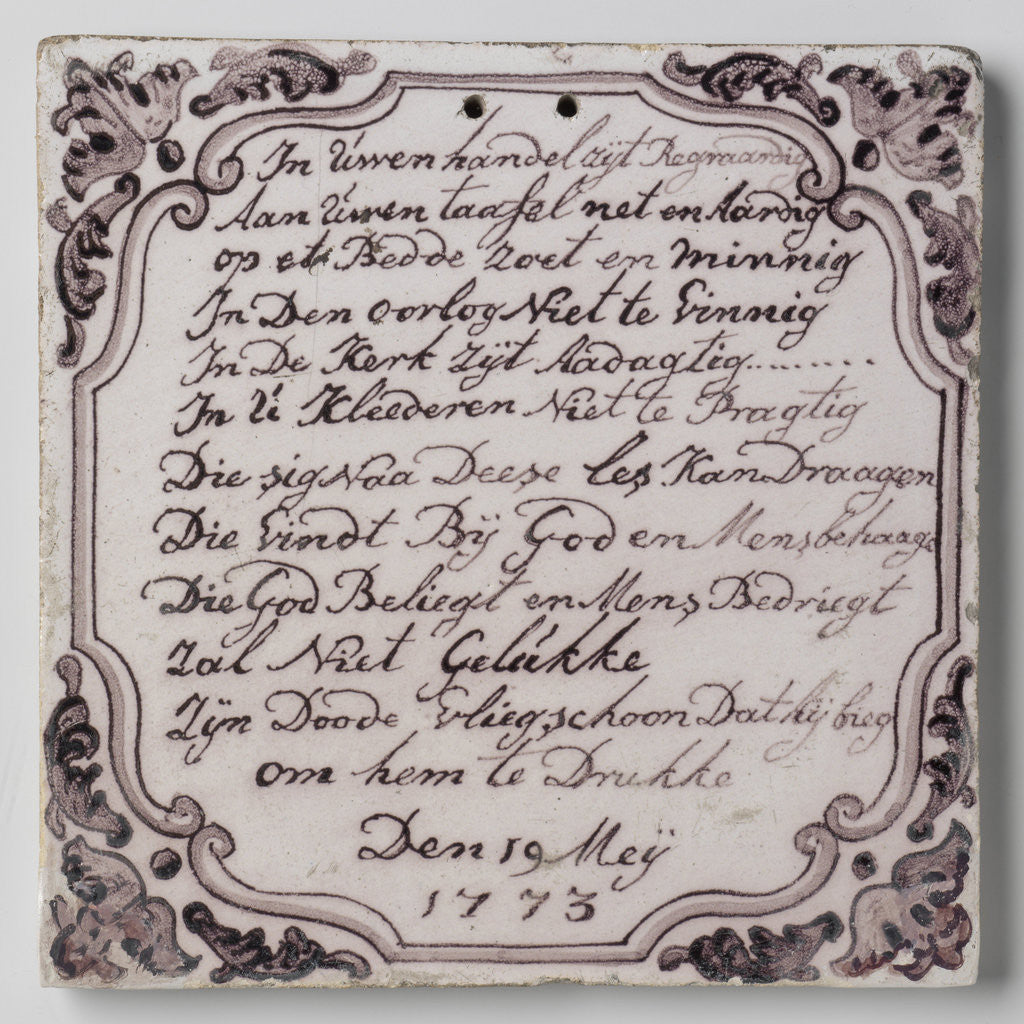 In Uwen handel zijt Regvaardig
Aan Uwen taafel net en Aardig
op et Bedde zoet en minnig
In Den oorlog Niet te Vinnig
In De Kerk zijt Aadagtig.........
In Ú Kleederen Niet te Pragtig
Die sig Naa Deese les Kan Draagen
Die Vindt Bij God en Mens behaage
Die God Beliegt en Mens Bedriegt
Zal Niet Gelúkke
Zijn Doode vlieg schoon Dat hij bieg
om hem te Drukke
Den 19 Meij
1773